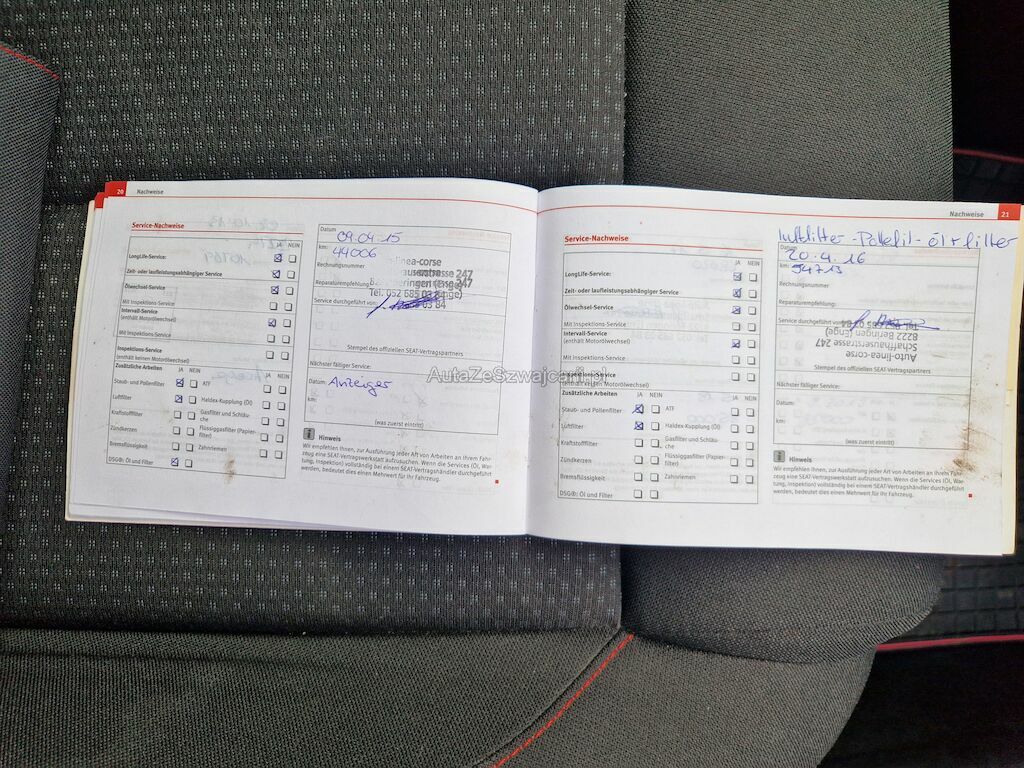 20 Nachweise
Service-Nachweise
JA NEIN
LongLife-Service:
Zeit- oder laufleistungsabhängiger Service
Ölwechsel-Service
Mit Inspektions-Service
Intervall-Service
(enthält Motorölwechsel)
Mit Inspektions-Service
Inspektions-Service
(enthält keinen Motorölwechsel)
Zusätzliche Arbeiten JA NEIN JA NEIN
Staub- und Pollenfilter ATF
Luftfilter Haldex-Kupplung (Öl)
Kraftstofffilter Gasfilter und Schläu-
che
Zündkerzen Flüssiggasfilter (Papier-
filter)
Bremsflüssigkeit Zahnriemen
DSG®: Öl und Filter
Datum 09.04.15
km: 44006
Rechnungsnummer
nea-corse
hauserstrasse 247
Reparaturempfehlung:
Tel. 052 685 03 84
Service durchgeführt von:
Stempel des offiziellen SEAT-Vertragspartners
Nächster fälliger Service:
Datum: Anzeiger
km:
(was zuerst eintritt)
Hinweis
Wir empfehlen Ihnen, zur Ausführung jeder Art von Arbeiten an Ihrem Fahr-
zeug eine SEAT-Vertragswerkstatt aufzusuchen. Wenn die Services (Öl, War-
tung, Inspektion) vollständig bei einem SEAT-Vertragshändler durchgeführt
werden, bedeutet dies einen Mehrwert für Ihr Fahrzeug.
AutaZeSzwajcarii.pl
Nachweise 21
Service-Nachweise
JA NEIN
LongLife-Service:
Zeit- oder laufleistungsabhängiger Service
Ölwechsel-Service
Mit Inspektions-Service
Intervall-Service
(enthält Motorölwechsel)
Mit Inspektions-Service
Inspektions-Service
(enthält keinen Motorölwechsel)
Zusätzliche Arbeiten JA NEIN JA NEIN
Staub- und Pollenfilter ATF
Luftfilter Haldex-Kupplung (Öl)
Kraftstofffilter Gasfilter und Schläu-
che
Zündkerzen Flüssiggasfilter (Papier-
filter)
Bremsflüssigkeit Zahnriemen
DSG®: Öl und Filter
Luftfilter - Pollefil - Öl + filter
Datum 20.4.16
km: 54713
Rechnungsnummer
Reparaturempfehlung:
Service durchgeführt von:
Auto-linea-corse
Schaffhauserstrasse 247
8222 Beringen (Enge)
Stempel des offiziellen SEAT-Vertragspartners
Nächster fälliger Service:
Datum:
km:
(was zuerst eintritt)
Hinweis
Wir empfehlen Ihnen, zur Ausführung jeder Art von Arbeiten an Ihrem Fahr-
zeug eine SEAT-Vertragswerkstatt aufzusuchen. Wenn die Services (Öl, War-
tung, Inspektion) vollständig bei einem SEAT-Vertragshändler durchgeführt
werden, bedeutet dies einen Mehrwert für Ihr Fahrzeug.